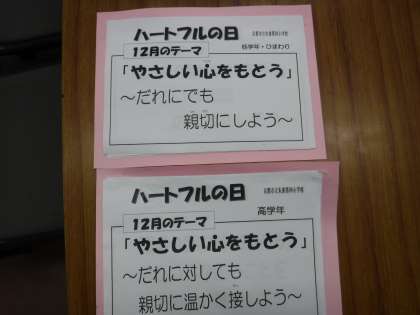 ハートフルの日
低学年・ひまわり
12月のテーマ
「やさしい心をもとう」
～だれにでも
親切にしよう～
ハートフルの日
高学年
12月のテーマ
「やさしい心をもとう」
～だれに対しても
親切に温かく接しよう～